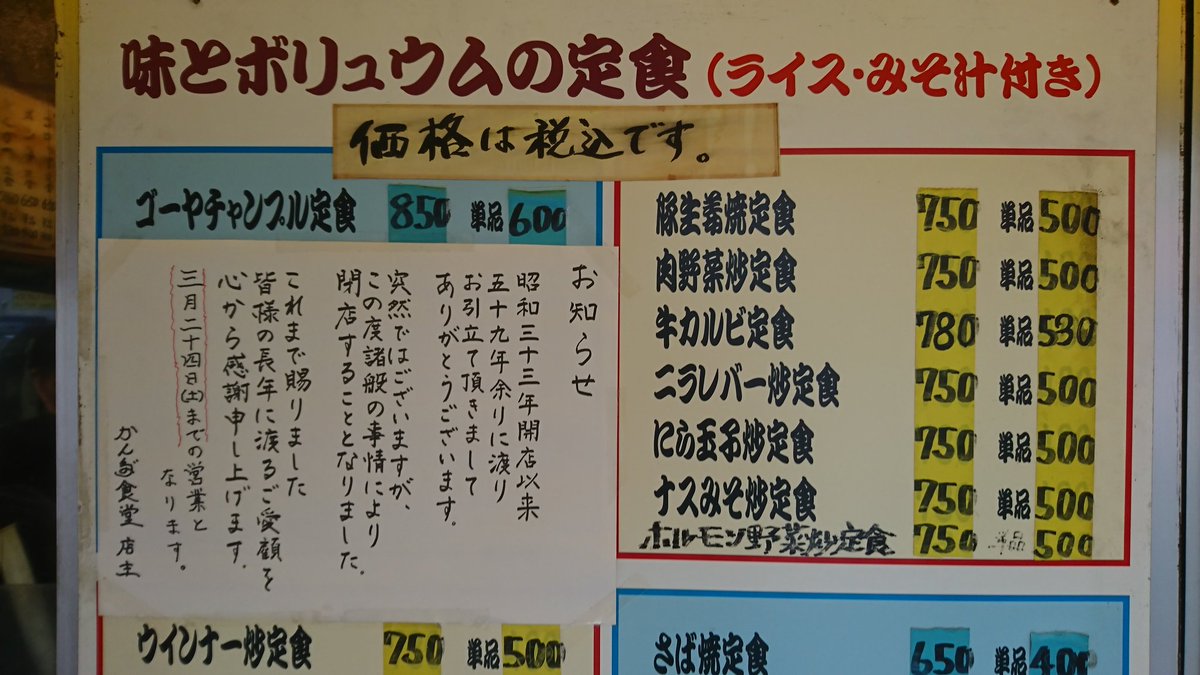 味とボリュウムの定食(ライス・みそ汁付き)
価格は税込です。
ゴーヤチャンプル定食 850 単品 600
お知らせ
昭和三十三年開店以来
五十九年余りに渡り
お引立て頂きまして
ありがとうございます。
突然ではございますが、
この度諸般の事情により
閉店することとなりました。
これまで賜りました
皆様の長年に渡るご愛顧を
心から感謝申し上げます。
三月二十四日(土)までの営業と
なります。
食堂 店主
ウインナー炒定食 750 単品 500
豚生姜焼定食 750 単品 500
肉野菜炒定食 750 単品 500
牛カルビ定食 780 単品 530
ニラレバー炒定食 750 単品 500
にら玉子炒定食 750 単品 500
ナスみそ炒定食 750 単品 500
ホルモン野菜炒定食 750 単品 500
さば焼定食 650 単品 400